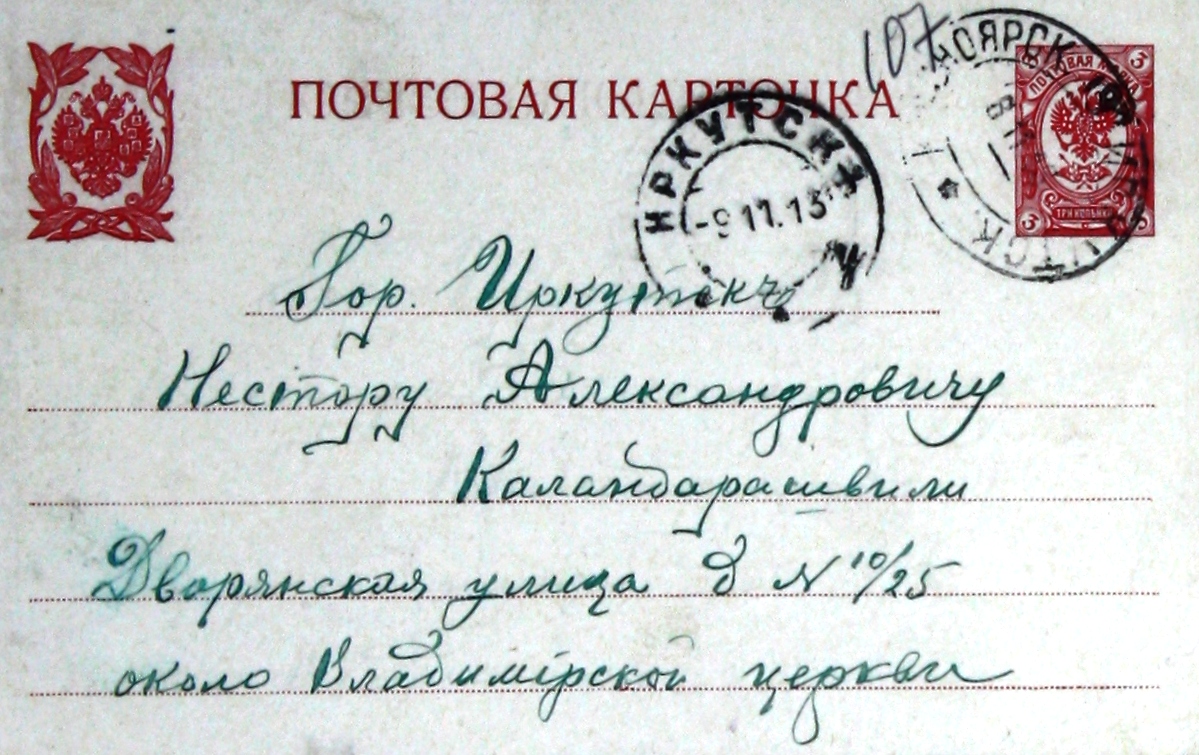 107
ПОЧТОВАЯ КАРТОЧКА
ПОЧТОВАЯ МАРКА
3 3
ТРИ КОПѢЙКИ
3
ИРКУТСКЪ
-9 11.13
Гор. Иркутскъ
Нестору Александровичу
Каландарашвили
Дворянская улица д N 10/25
около Владимірской церкви